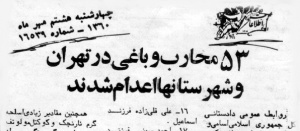 چهارشنبه هشتم مهر ماه
۱۳۶۰ - شماره ۱۶۵۳۹
اطلاعات
۵۳ محارب و باغی در تهران
و شهرستانها اعدام شدند
روابط عمومی دادستانی
جمهوری اسلامی
۱۶- علی قلی‌زاده فرزند
اسماعیل
همچنین مقادیر زیادی اسلحه
گرم نارنجک و کوکتل مولوتف